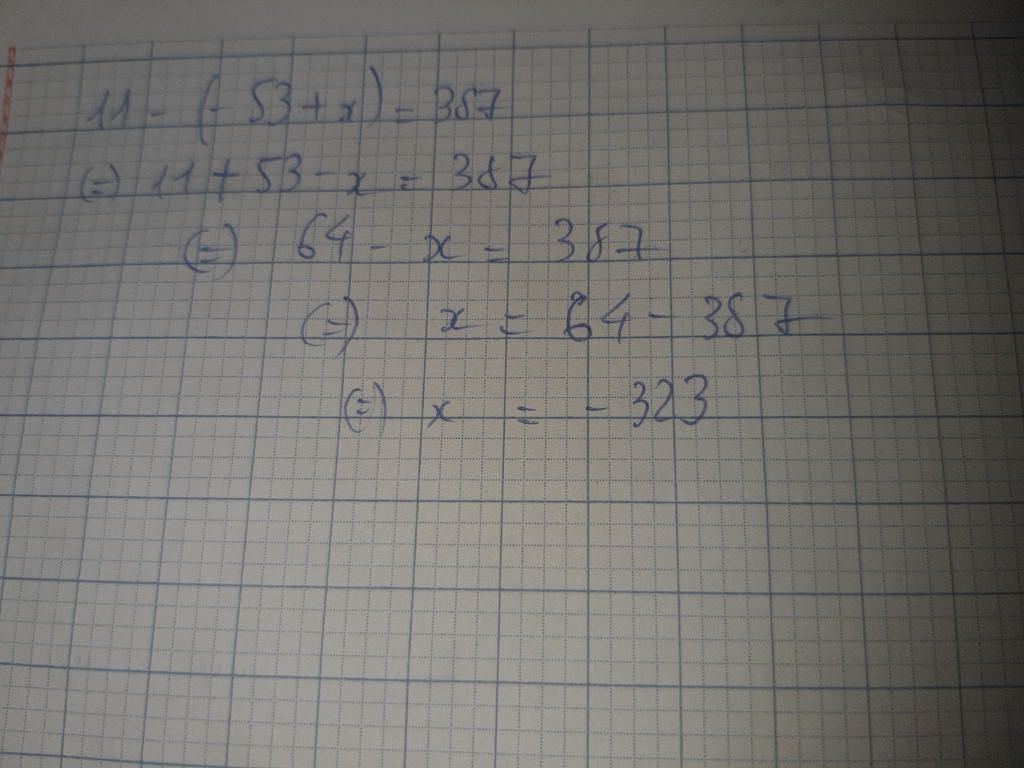 11 - (- 53 + x) = 387
(=) 11 + 53 - x = 387
(=) 64 - x = 387
(=) x = 64 - 387
(=) x = - 323